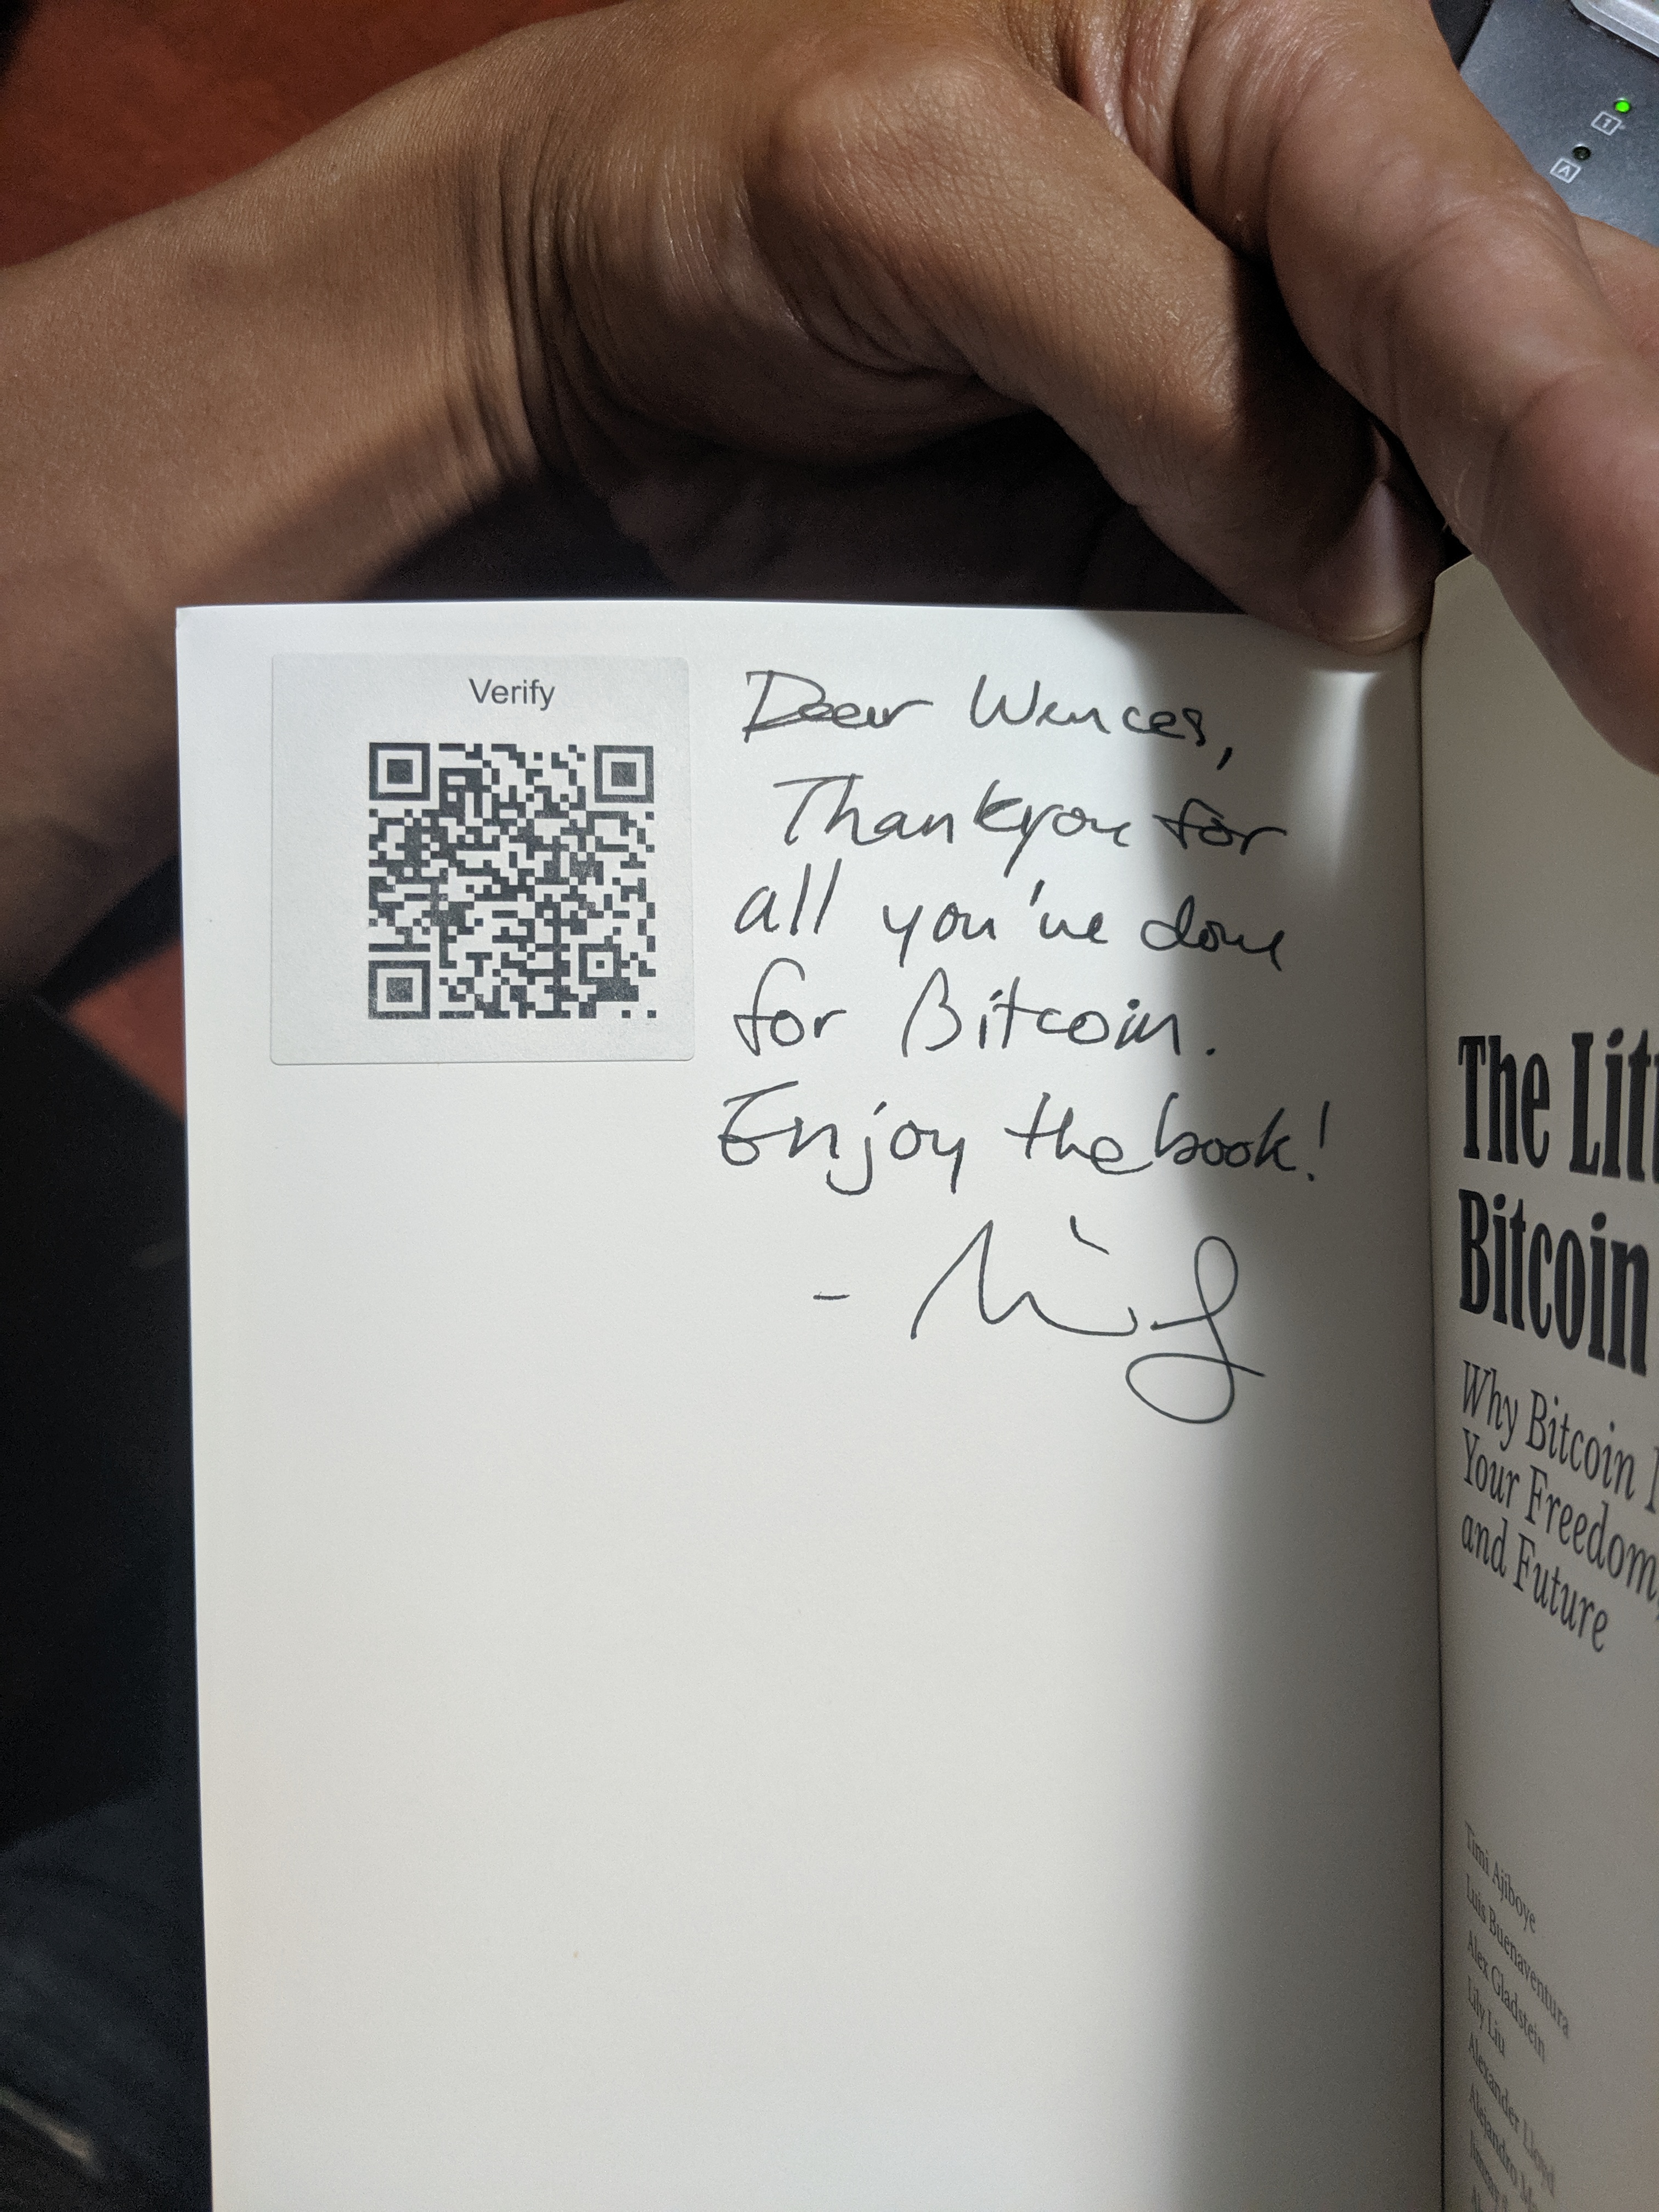 Verify
Dear Wences,
Thankyou for
all you've done
for Bitcoin.
Enjoy the book!
-
The Lit
Bitcoin
Why Bitcoin
Your Freedom,
and Future
Timi Ajiboye
Luis Buenaventura
Alex Gladstein
Lily Liu
Alexander Lloyd
Alejandro
1
A